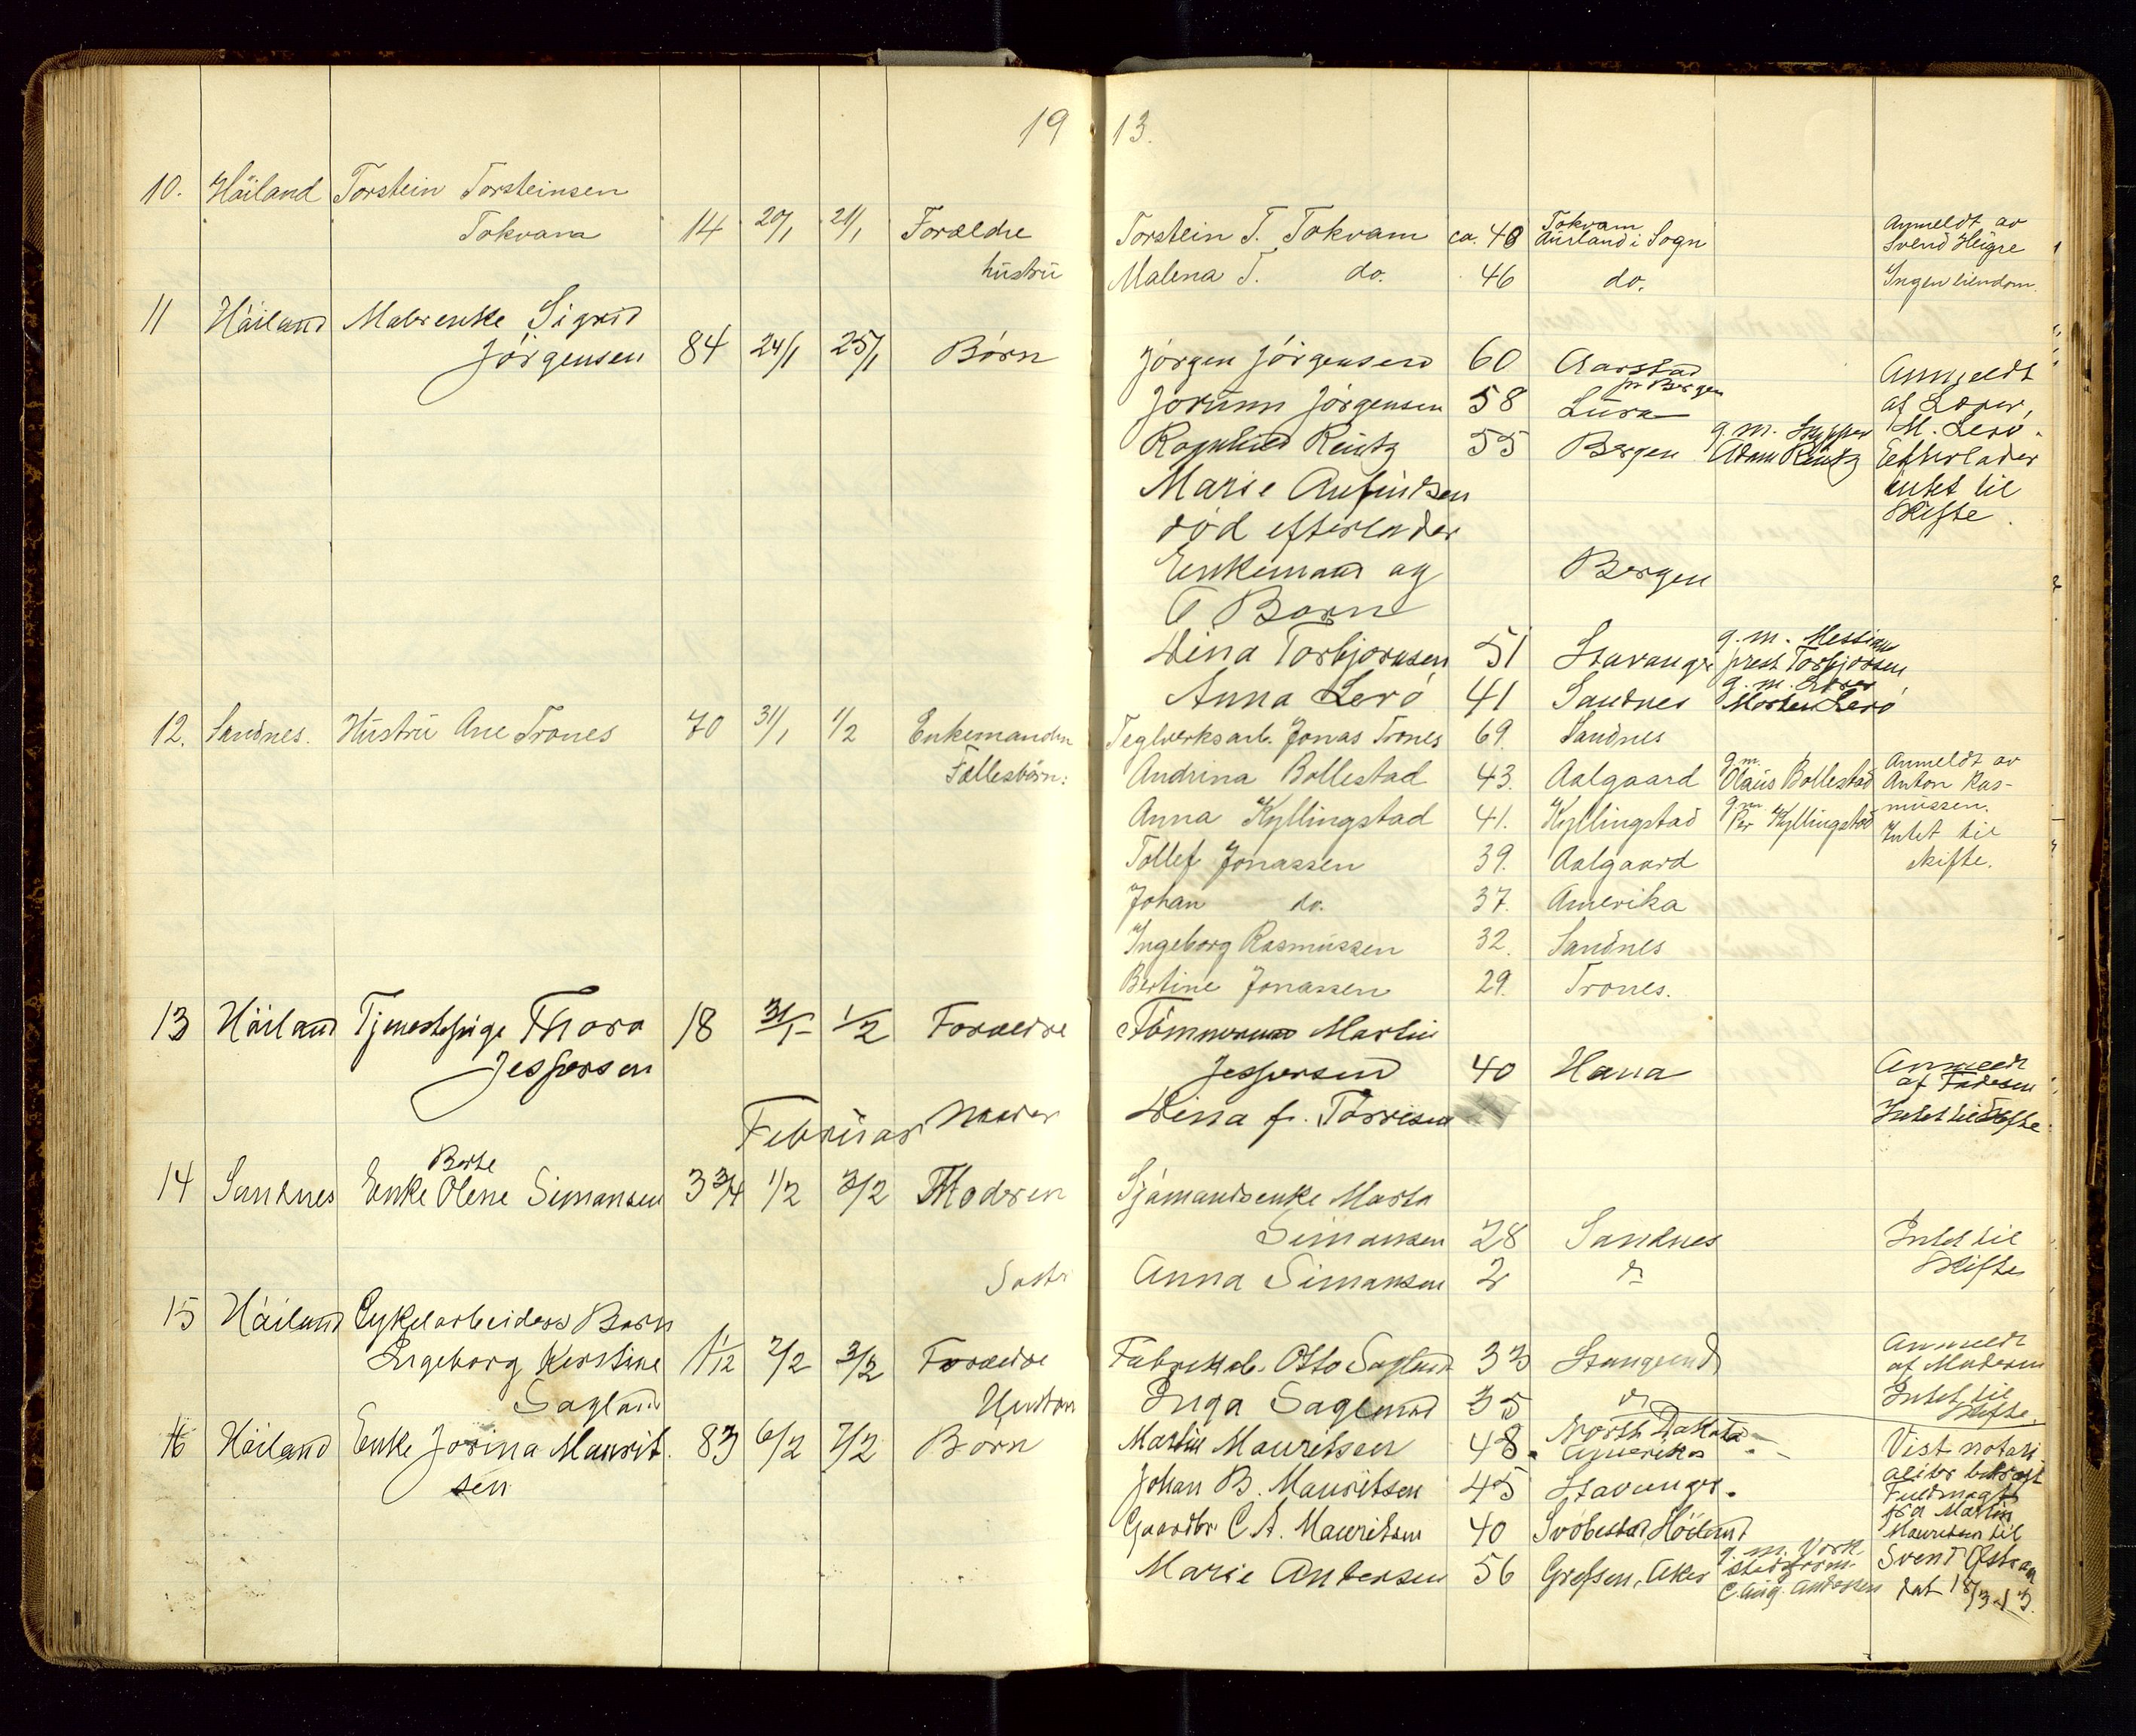 19 13.
10. Häiland Torstein Torsteinsen
Tokvam 14 20/1 21/1 Forældre Torstein T. Tokvam ca. 48 Tokvam Aurland i Sogn Anmeldt av Svend Heigre
hustru Malena T. do. 46 do. Ingen eiendom.
11 Häiland Malerenke Sigrid
Jörgensen 84 24/1 25/1 Börn Jörgen Jörgensen 60 Aarstad pr Bergen Anmeldt
Jorunn Jörgensen 58 Lura af Lærer,
Ragnhild Reutz 55 Bergen g. m. Skipper Adam Reutz M. Lerö. Efterlader
Marie Anfindsen intet til
död efterlader Skifte.
Enkemand og Bergen
6 Born
Dina Torbjornsen 51 Stavanger g. m. Messions prest Torbjorsen
Anna Lerö 41 Sandnes g. m. Lærer Morten Lerö
12. Sandnes. Hustru Ane Trones 70 31/1 1/2 Enkemanden Teglverksarb. Jonas Trones 69. Sandnes
Fællesbörn: Andrina Bollestad 43. Aalgaard g.m. Olaus Bollestad Anmeldt av Anton Ras-
Anna Kyllingstad 41. Kyllingstad g.m. Per Kyllingstad mussen. Intet til
Tollef Jonassen 39. Aalgaard skifte.
Johan do. 37. Amerika
Ingeborg Rasmussen 32. Sandnes
Bertine Jonassen 29. Trones.
13 Häiland Tjenestepige Thora 18 31/1 1/2 Forældre Tömmermand Martin
Jespersen Jespersen 40 Hana Anmeldt af Faderen
Moder Dina f. Törrisen Intet til Skifte
Februar
14 Sandnes Enke Berte Olene Simonsen 3 3/4 1/2 3/2 Moderen Sjömandsenke Marta
Simonsen 28 Sandnes Intet til
Anna Simonsen 2 do Skifte
15 Häiland Cykelarbeiders Barn
Ingeborg Kirstine 1 1/12 2/2 3/2 Forældre Fabrikarb. Otto Sagland 33 Stangeland Anmeldt af Moderen
Sagland Hustru Inga Sagland 35 do Intet til Skifte
16 Häiland Enke Jorina Maurit- 83 6/2 7/2 Börn Martin Mauritsen 48. North Dakota Amerika Vist notari
sen Johan B. Mauritsen 45 Stavanger. aliter bekræft Fuldmagt
Gaardbr. C. A. Mauritsen 40 Höiland fra Martin Mauritsen til
Marie Andersen 56 Grefsen, Aker g. m. C. Aug. Andersen Svend dat 18/3 13.